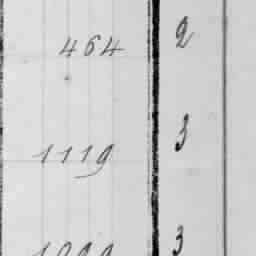 464 2
1119 3
3